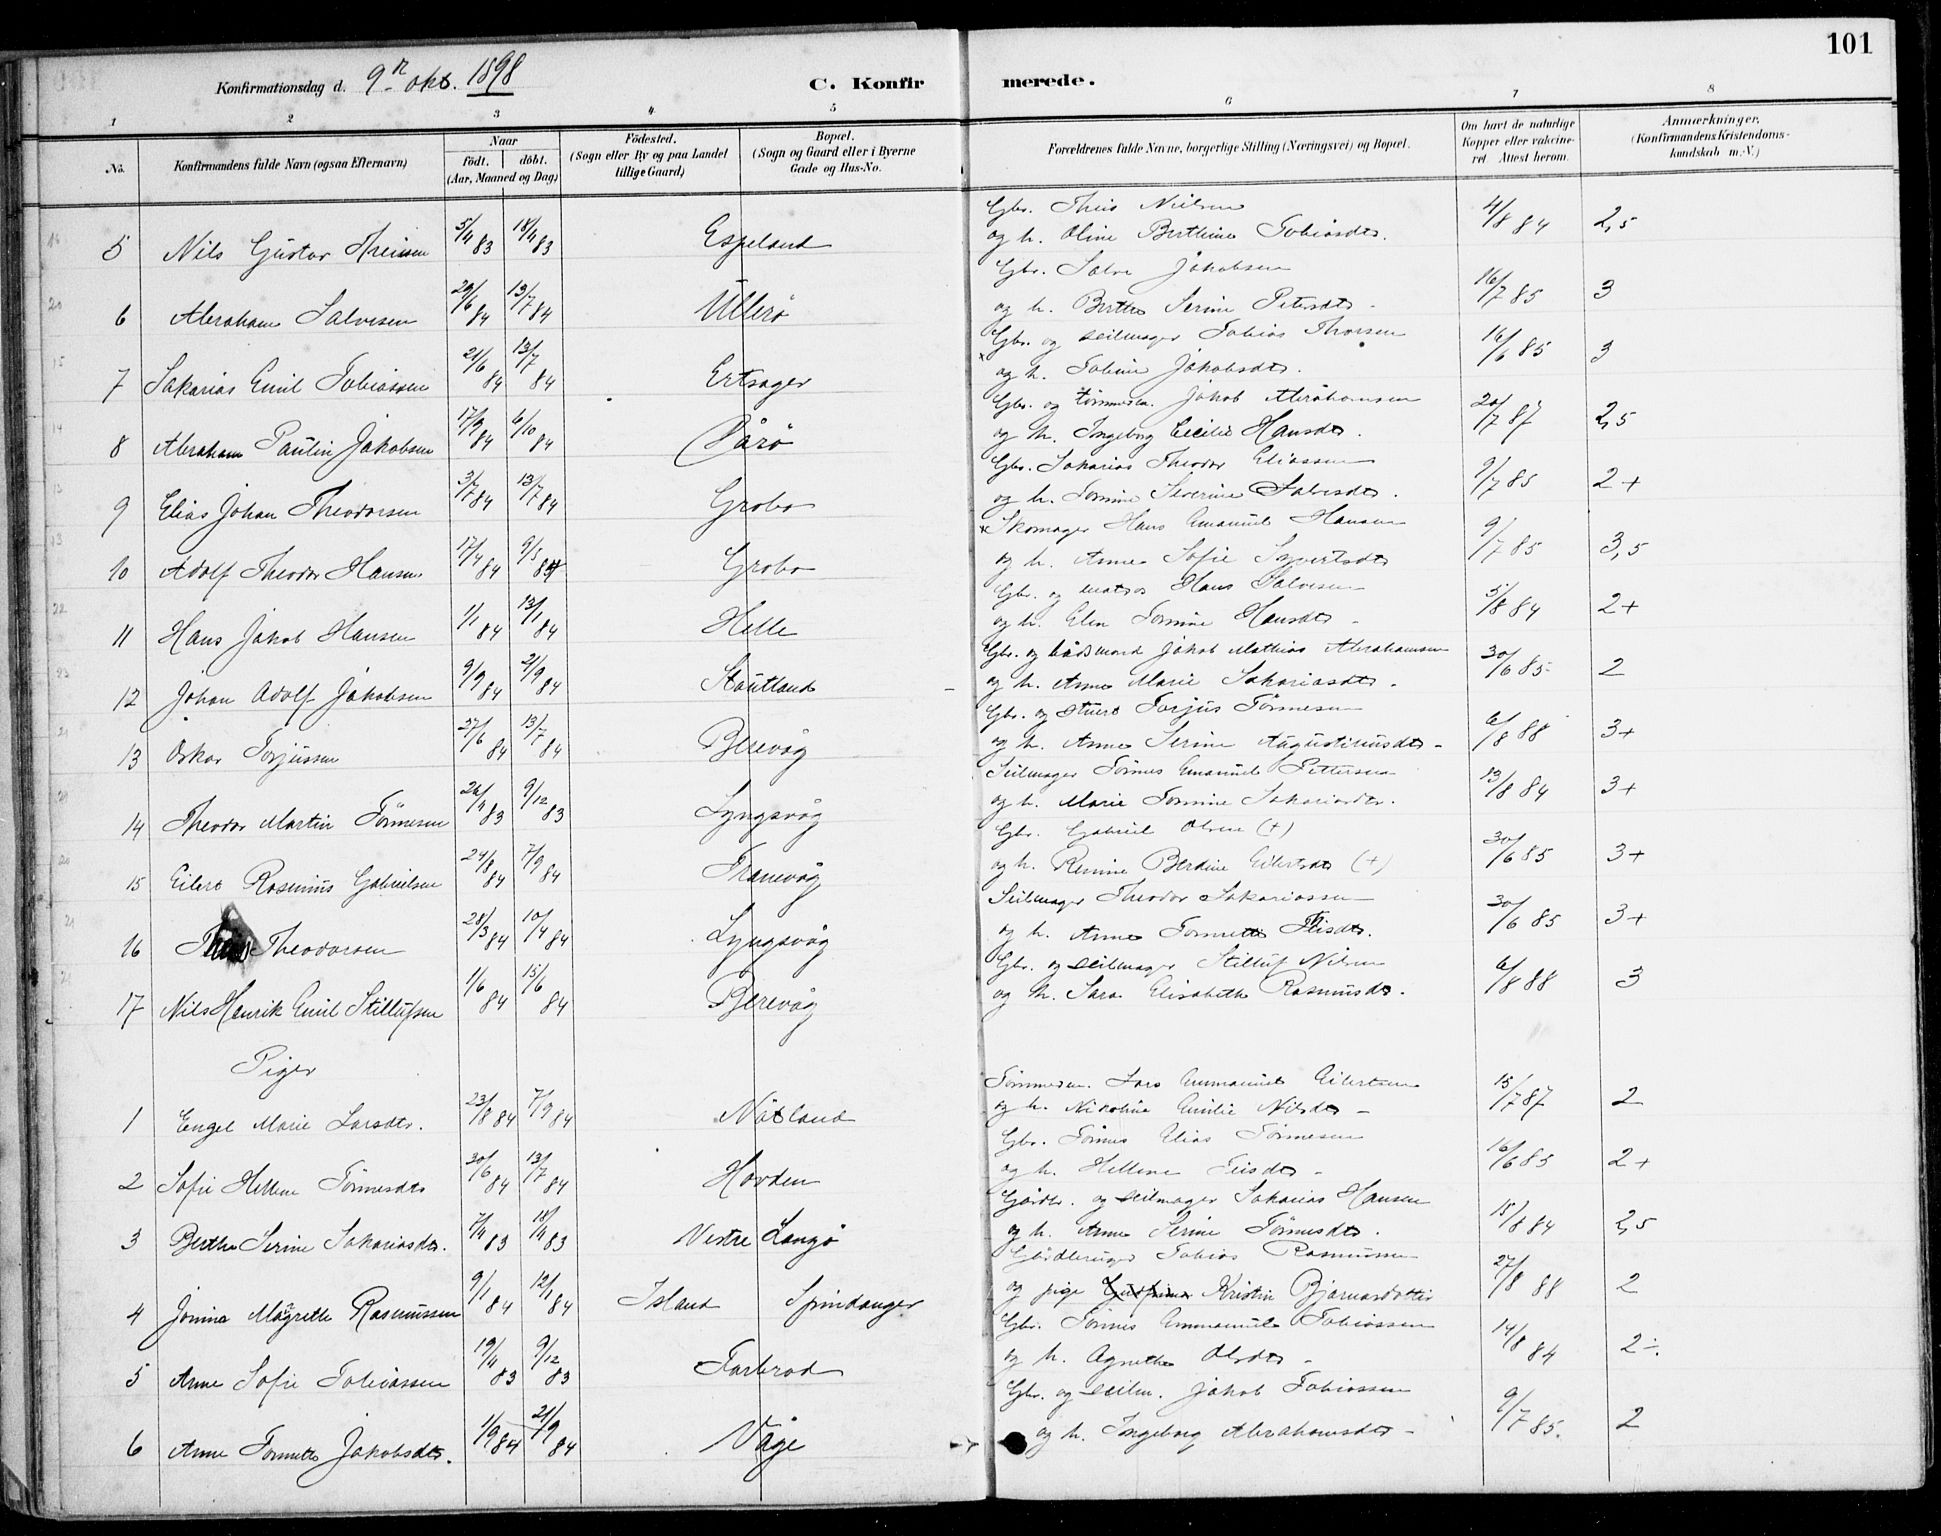 101
Konfirmationsdag d. 9n okt. 1898
C. Konfirmerede.
1 2 3 4 5 6 7 8
No.
Konfirmandens fulde Navn (ogsaa Efternavn)
Naar
födt. döbt.
(Aar, Maaned og Dag)
Födested.
(Sogn eller By og paa Landet
tillige Gaard)
Bopæl.
(Sogn og Gaard eller i Byerne
Gade og Hus-No.
Forældrenes fulde Navne, borgerlige Stilling (Næringsvei) og Bopæl.
Om havt de naturlige
Kopper eller vakcine-
ret Attest herom.
Anmærkninger,
(Konfirmandens Kristendoms-
kundskab m.V.)
Gbr. Theis Nielsen
5 Nils Gustav Theissen 5/11 83 18/11 83 Espeland og h. Oline Berthine Tobiasdtr. 4/8 84 2,5
Gbr. Salve Jakobsen
6 Abraham Salvesen 29/6 84 13/7 84 Ullerö og h. Berthe Serine Petersdtr 16/7 85 3
Gbr. og seilmager Tobias Thorsen
7 Sakarias Emil Tobiassen 21/6 84 13/7 84 Ertsager og h. Tobine Jakobsdtr. 16/6 85 3
Gbr. og tömmerm. Jakob Abrahamsen
8 Abraham Paulin Jakobsen 17/9 84 6/10 84 Párö og h. Ingeborg Cecilie Hansdtr. 20/7 87 2,5
Gbr. Sakarias Theodor Eliassen
9 Elias Johan Theodorsen 3/7 84 13/7 84 Grobo og h. Tomine Severine Salvesdtr. 9/7 85 2+
Skomager Hans Emanuel Hansen
10 Adolf Theodor Hansen 17/4 84 9/5 84 Grobo og h. Anne Sofie Syvertsdtr 9/7 85 3,5
Gbr. og matros Hans Salvesen
11 Hans Jakob Hansen 1/1 84 13/1 84 Helle og h. Elen Tomine Hansdtr 5/8 84 2+
Gbr. og bådsmand Jakob Mathias Abrahamsen
12 Johan Adolf Jakobsen 9/9 84 21/9 84 Stautland og h. Anne Marie Sakariasdtr. 30/6 85 2
Gbr. og stuert Torjus Tönnesen
13 Oskar Torjussen 27/6 84 13/7 84 Berevåg og h. Anne Serine Augustinusdtr 6/8 88 3+
Seilmager Tönnes Emanuel Pettersen
14 Theodor Martin Tönnesen 83 9/12 83 Lyngsvåg og h. Marie Tomine Sakariasdtr. 13/8 84 3+
Gbr. Gabriel Olsen (+)
15 Eilert Rasmus Gabrielsen 24/8 84 7/9 84 Tranevåg og h. Remine Berdine Eilertsdtr (+) 30/6 85 3+
Seilmager Theodor Sakariassen
16 Theis Theodorsen 28/3 84 10/4 84 Lyngsvåg og h. Anne Tonnette Thisdtr. 30/6 85 3+
Gbr. og seilmager Stilluf Nilsen
17 Nils Henrik Emil Stillufsen 1/6 84 15/6 84 Berevåg og h. Sara Elisabeth Rasmusdtr. 6/8 88 3
Piger
Tömmerm. Lars Emmanuel Eilertsen
1 Engel Marie Larsdtr. 23/8 84 7/9 84 Nötland og h. Nikoline Emilie Nilsdtr 15/7 87 2
Gbr. Tönnes Elias Tönnesen
2 Sofie Hellene Tönnesdtr 30/6 84 13/7 84 Hovden og h. Hellene Teisdtr 16/6 85 2+
Gårdbr. og seilmager Sakarias Hansen
3 Berthe Serine Sakariasdtr. 7/11 83 18/11 83 Vestre Langö og h. Anne Serine Tönnesdtr. 15/8 84 2,5
Gårdbruger Tobias Rasmussen
4 Jonine Magrethe Rasmussen 9/1 84 12/1 84 Island Spindanger og pige Kristin Bjarnardottir 27/8 88 2
Gbr. Tönnes Emmanuel Tobiassen
5 Anne Sofie Tobiassen 19/11 83 9/12 83 Farbrod og h. Agnethe Olsdtr 14/8 84 2÷
Gbr. og seilm. Jakob Tobiassen
6 Anne Tonnette Jakobsdtr. 1/9 84 21/9 84 Våge og h. Ingeborg Abrahamsdtr 9/7 85. 2